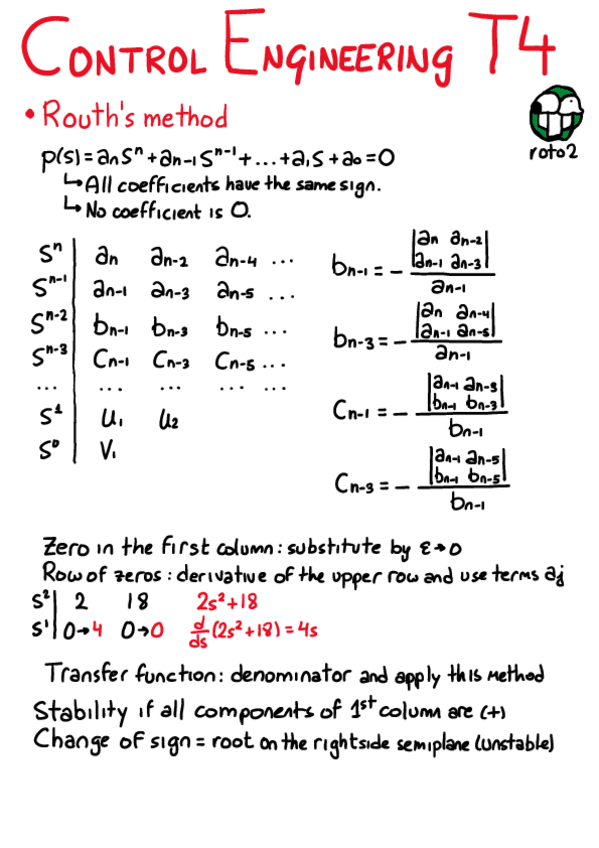 CONTROL ENGINEERING T4
• Routh's method
roto2
p(s) = aₙsⁿ + aₙ₋₁sⁿ⁻¹ + ... + a₁s + a₀ = 0
↳ All coefficients have the same sign.
↳ No coefficient is 0.
sⁿ | aₙ aₙ₋₂ aₙ₋₄ ...
sⁿ⁻¹ | aₙ₋₁ aₙ₋₃ aₙ₋₅ ...
sⁿ⁻² | bₙ₋₁ bₙ₋₃ bₙ₋₅ ...
sⁿ⁻³ | cₙ₋₁ cₙ₋₃ cₙ₋₅ ...
... | ... ... ... ...
s¹ | u₁ u₂
s⁰ | v₁
bₙ₋₁ = - |aₙ aₙ₋₂|
|aₙ₋₁ aₙ₋₃|
aₙ₋₁
bₙ₋₃ = - |aₙ aₙ₋₄|
|aₙ₋₁ aₙ₋₅|
aₙ₋₁
cₙ₋₁ = - |aₙ₋₁ aₙ₋₃|
|bₙ₋₁ bₙ₋₃|
bₙ₋₁
cₙ₋₃ = - |aₙ₋₁ aₙ₋₅|
|bₙ₋₁ bₙ₋₅|
bₙ₋₁
Zero in the first column: substitute by ε→0
Row of zeros: derivative of the upper row and use terms aⱼ
s² | 2 18 2s²+18
s¹ | 0→4 0→0 d/ds (2s²+18) = 4s
Transfer function: denominator and apply this method
Stability if all components of 1st column are (+)
Change of sign = root on the rightside semiplane (unstable)